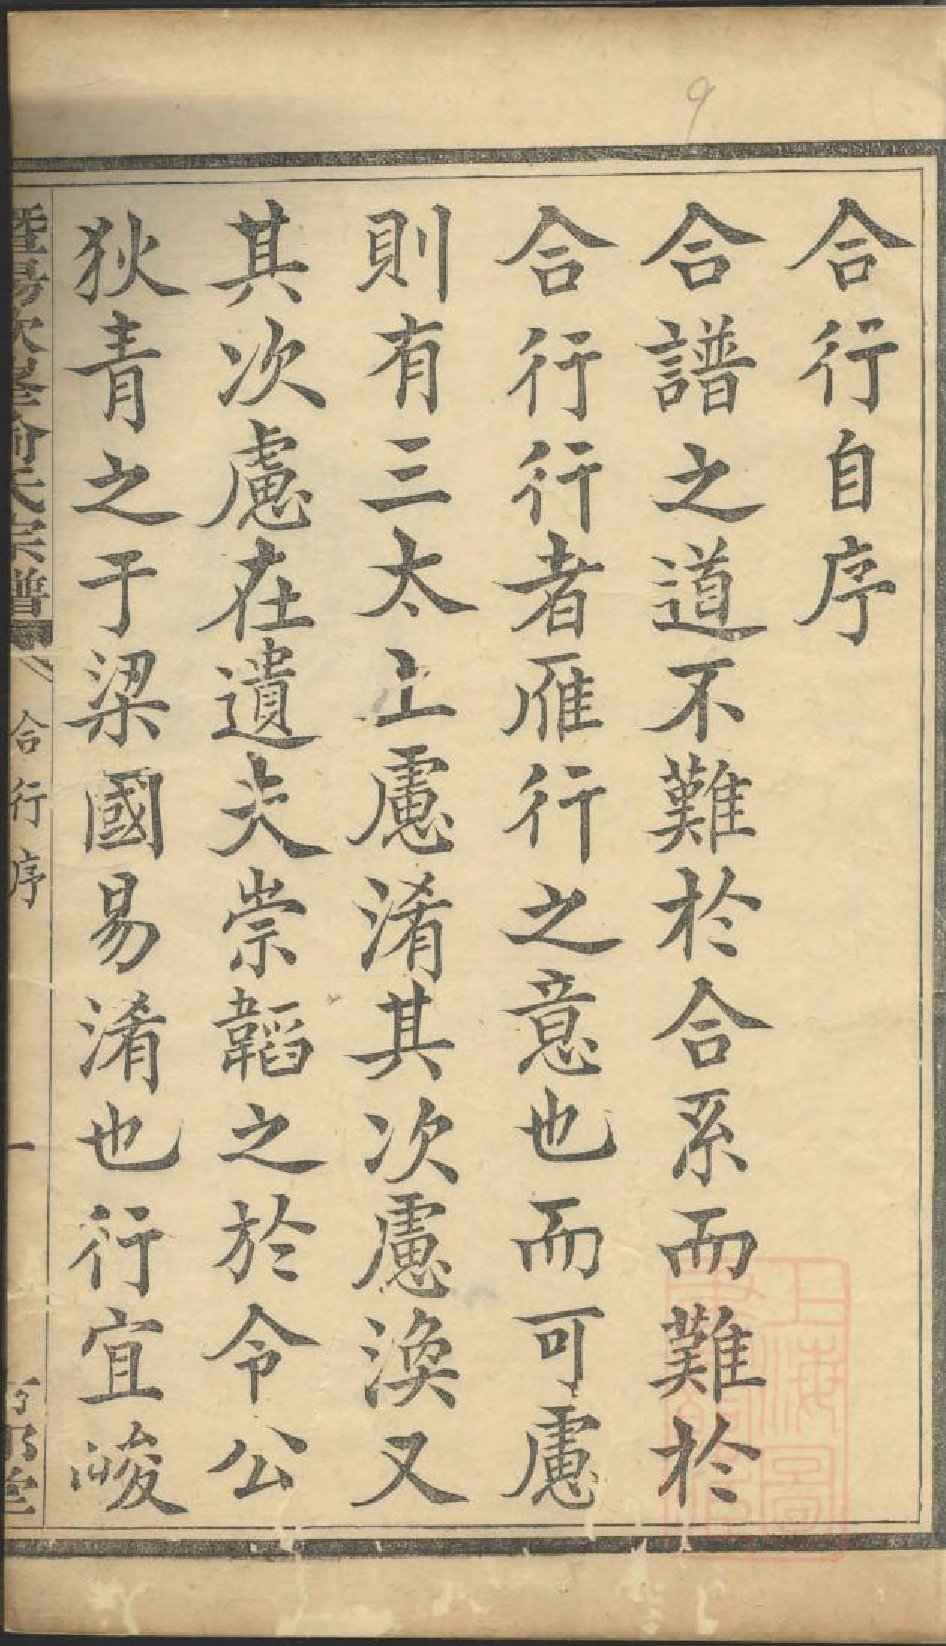 9
合行自序
合譜之道不難於合系而難於
合行行者雁行之意也而可慮
則有三太上慮淆其次慮渙又
其次慮在遺夫崇韜之於令公
狄青之于梁國易淆也行宜峻
暨陽次峯俞氏宗譜 合行序 一
上海圖